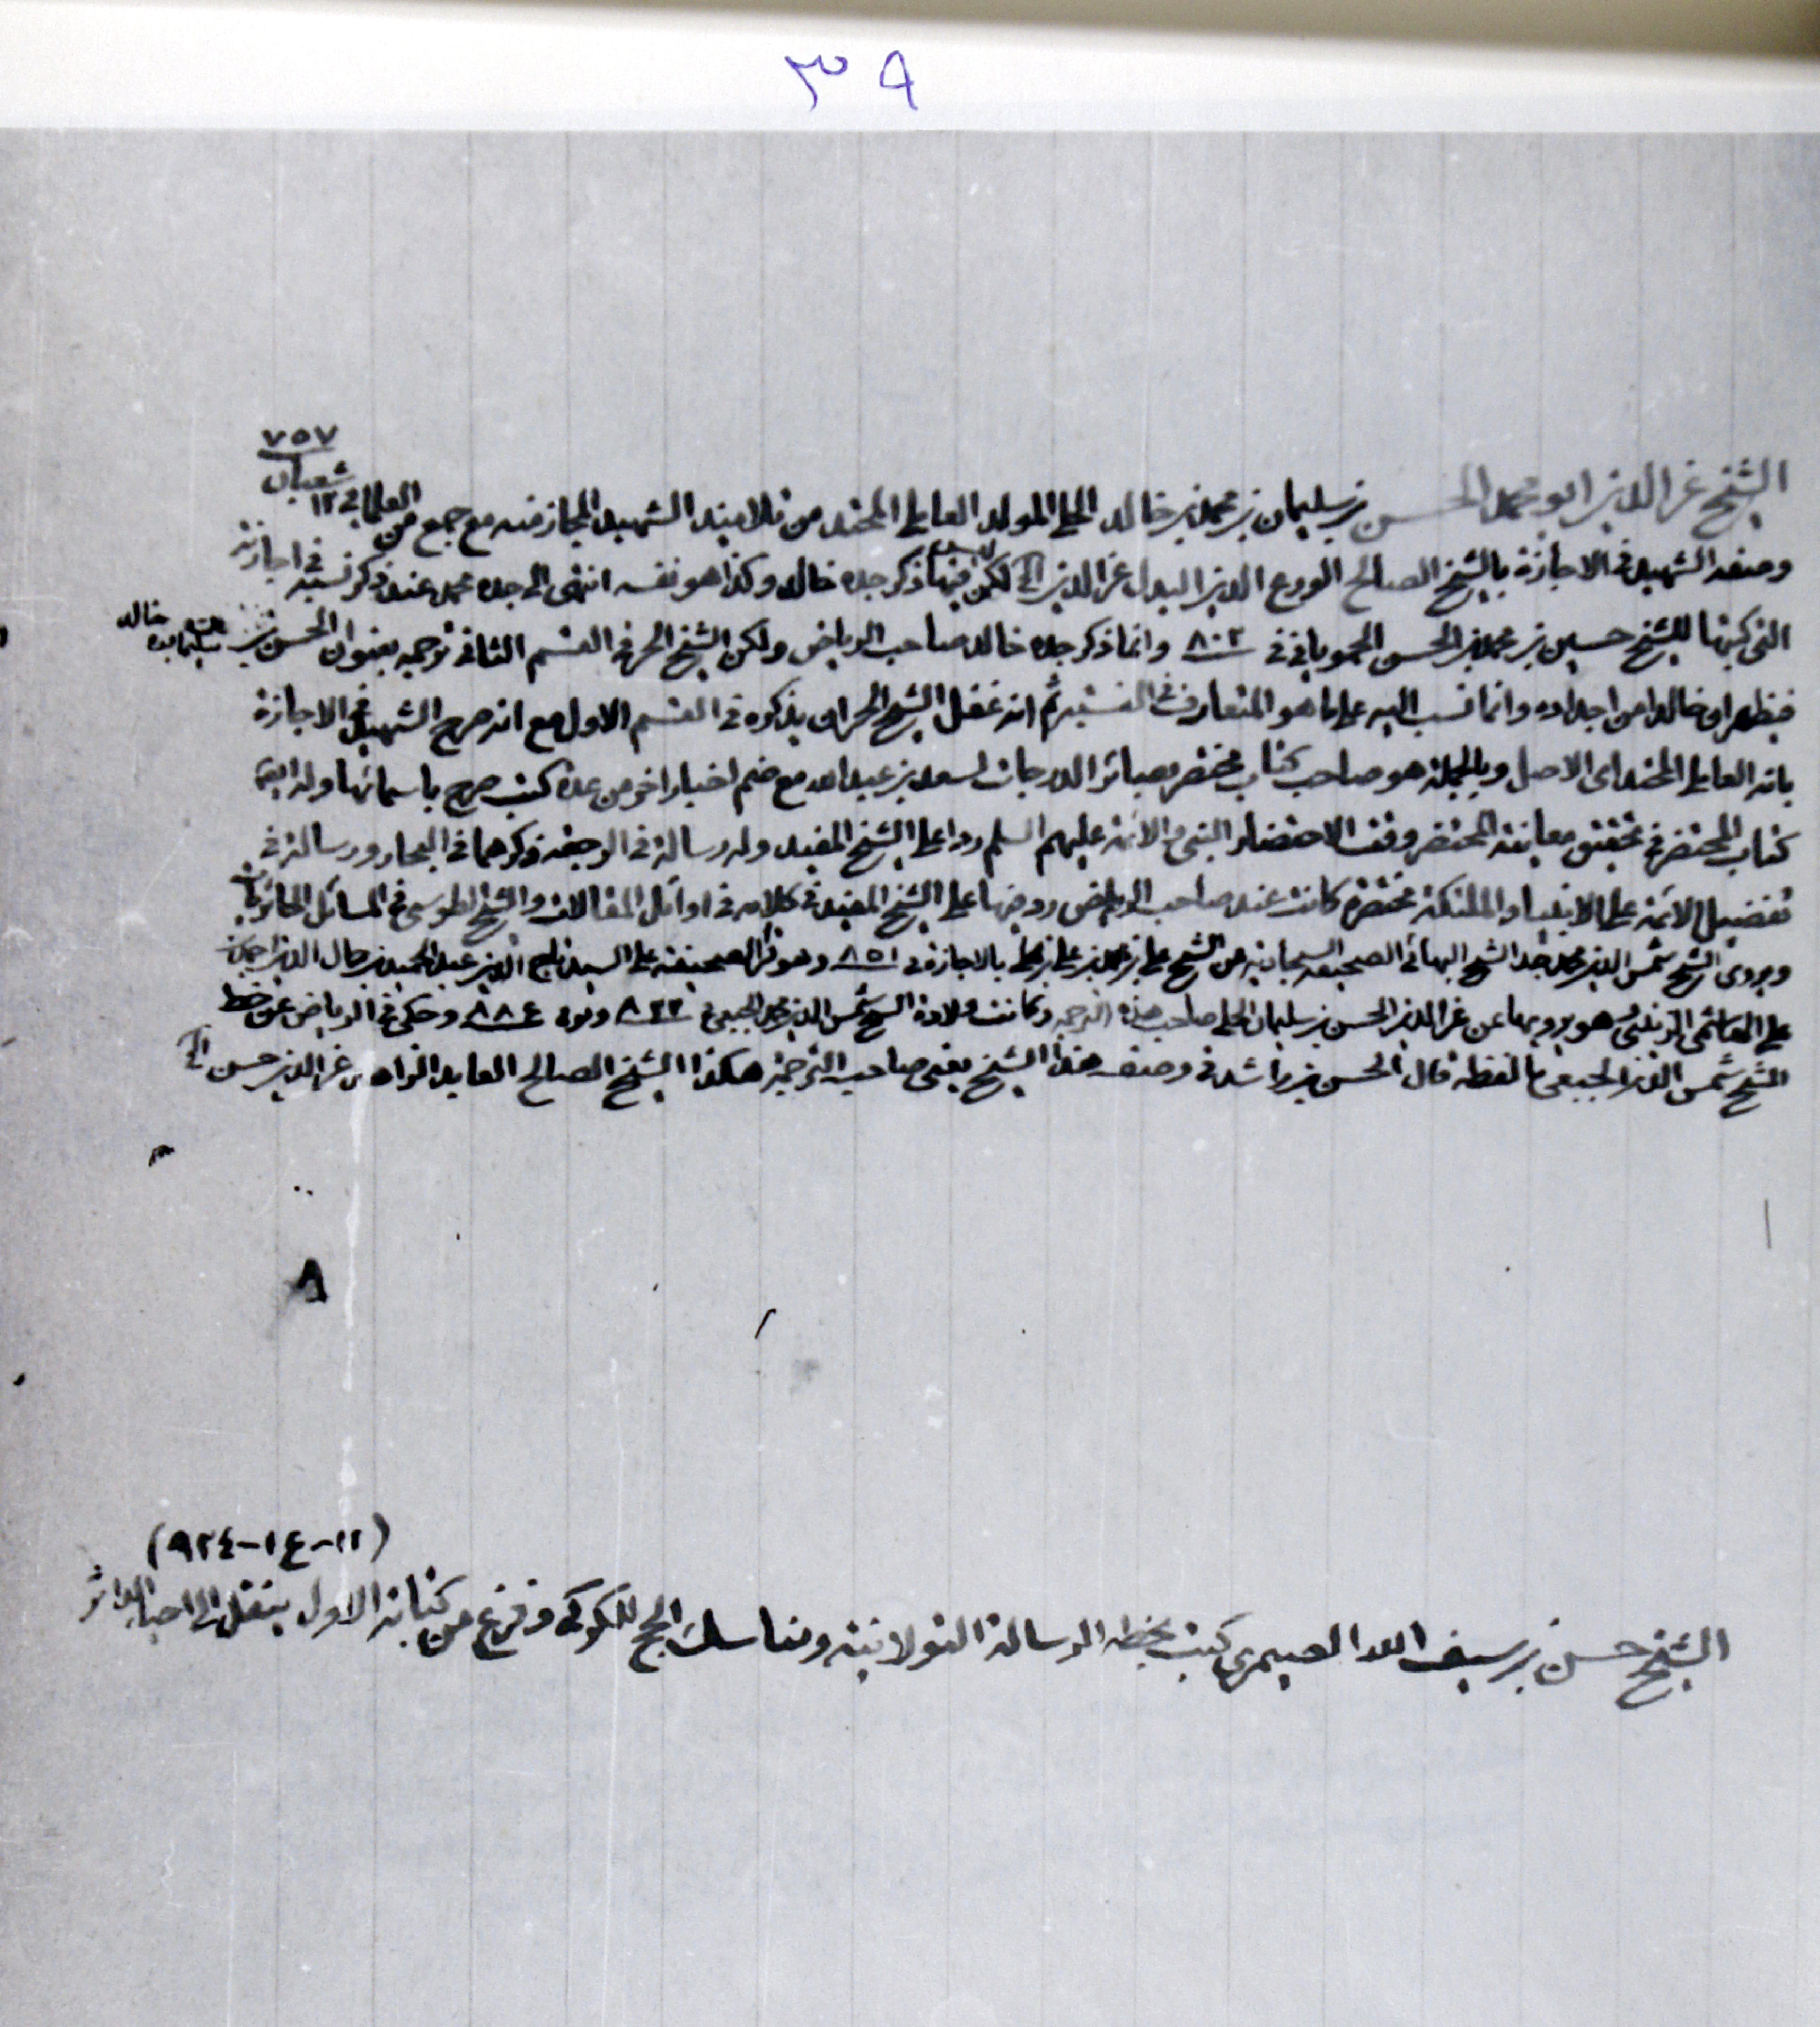 ٣٩
٧٥٧
شعبان
الشيخ عز الدين ابو محمد الحسن بن سليمان بن محمد بن خالد الحلي المولد العاملي المحتد من تلاميذ الشهيد المجاز منه مع جمع من العلماء في ١٢
وصفه الشهيد في الاجازة بالشيخ الصالح الورع الدين البدل عز الدين الخ لكن ليس فيها ذكر جده خالد وكذا هو نفسه انتهى الى جده محمد عند ذكر نسبه في اجازته
التي كتبها للشيخ حسين بن محمد بن الحسن الجموياني في ٨٠٢ وانما ذكر جده خالد صاحب الرياض ولكن الشيخ الحر في القسم الثاني ترجمه بعنوان الحسن بن سليمان بن خالد
فيظهر ان خالدا من اجداده وانما نسب اليه على ما هو المتعارف في النسبة ثم انه غفل الشيخ الحر ان يذكره في القسم الاول مع انه صرح الشهيد في الاجازة
بانه العاملي المحتد اى الاصل وبالجملة هو صاحب كتاب مختصر بصائر الدرجات لسعد بن عبد الله مع ضم اخبار اخر من عدة كتب صرح باسمائها وله ايضا
كتاب المحتضر في تحقيق معاينة المحتضر وقت الاحتضار النبي و الائمة عليهم السلم ردا على الشيخ المفيد وله رسالة في الرجعة ذكرهما في البحار ورسالة في
تفضيل الائمة على الانبياء والملئكة مختصرة كانت عند صاحب الرياض رد فيها على الشيخ المفيد في كلامه في اوائل المقالات والشيخ الطوسي في المسائل الحائريات
ويروى الشيخ شمس الدين محمد جد الشيخ البهائي الصحيفة السجادية عن الشيخ علي بن محمد بن علي بن محلي بالاجازة في ٨٥١ وهو قرأ الصحيفة على السيد تاج الدين عبد الحميد بن جمال الدين احمد بن
علي الهاشمي الزينبي وهو يرويها عن عز الدين الحسن بن سليمان الحلي صاحب هذه الترجمة وكانت ولادة الشيخ شمس الدين محمد الجبعي ٨٢٢ وتوفي ٨٨٦ وحكى في الرياض عن خط
الشيخ شمس الدين الجبعي ما لفظه قال الحسن بن راشد في وصف هذا الشيخ يعني صاحب الترجمة هكذا الشيخ الصالح العابد الزاهد عز الدين حسن الخ
(١٢-ع١-٩٢٤)
الشيخ حسن بن سيف الله الصيمري كتب بخطه الرسالة التولانية ومناسك الحج للكركي وفرغ من كتابة الاول ينقل الى احياء الداثر